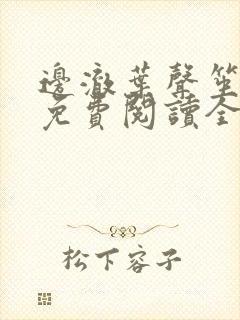 邊澈葉聲笙
免費閱讀全
松下容子